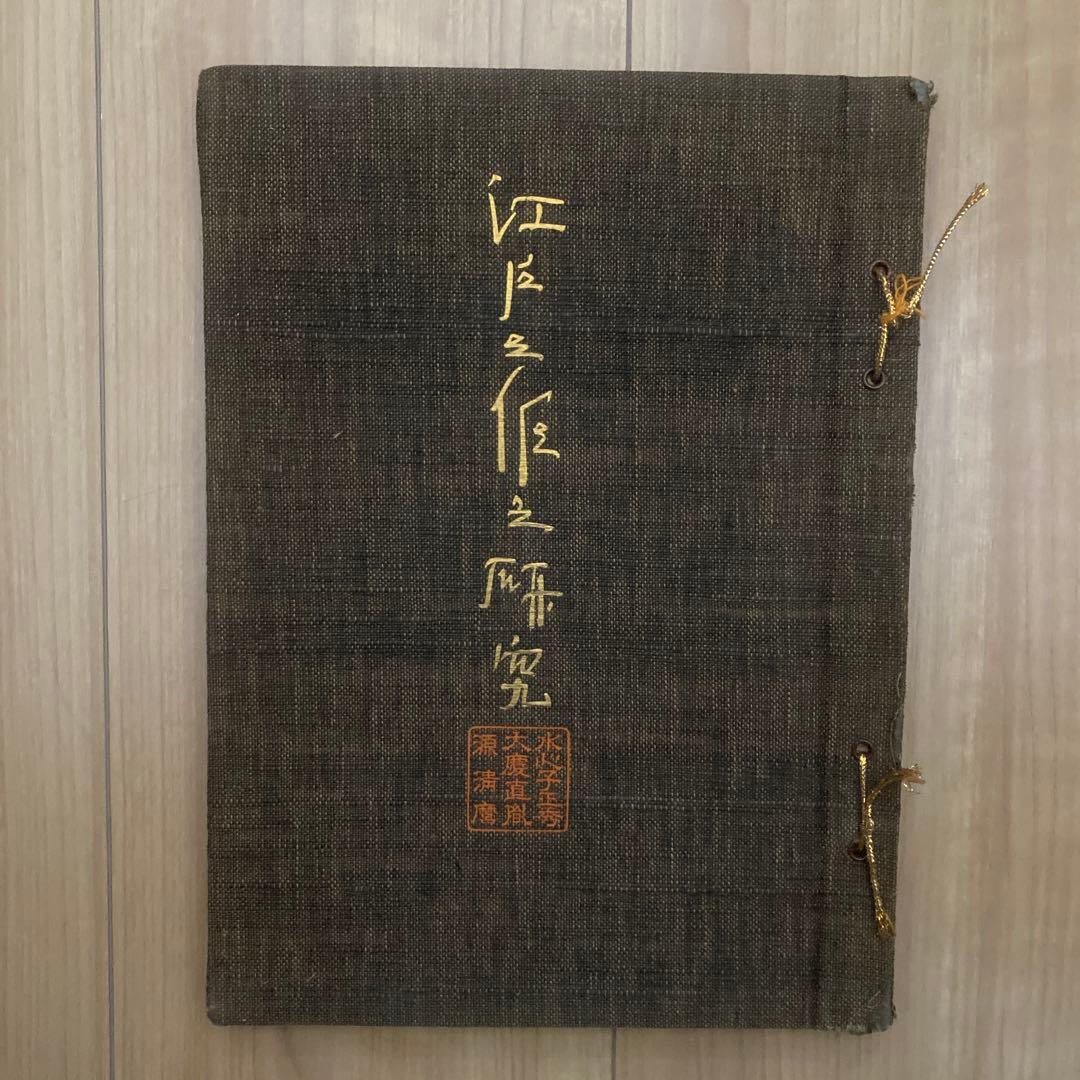 江戸三作之研究
水心子正秀
大慶直胤
源清麿